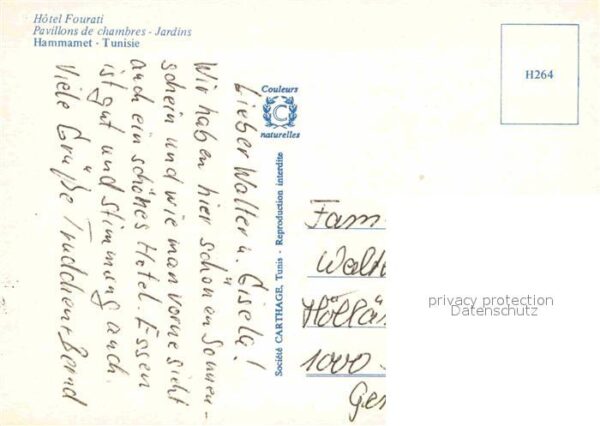 Hôtel Fourati
Pavillons de chambres - Jardins
Hammamet - Tunisie
Lieber Walter u. Gisela!
Wir haben hier schönen Sonnen-
schein und wie man vorne sieht
auch ein schönes Hotel. Essen
ist gut und Stimmung auch.
Viele Grüße Trudchen + Bernd
Couleurs
C
naturelles
Société CARTHAGE, Tunis - Reproduction interdite
H264
Fam
Walt
Hollä
1000
Ge
privacy protection
Datenschutz